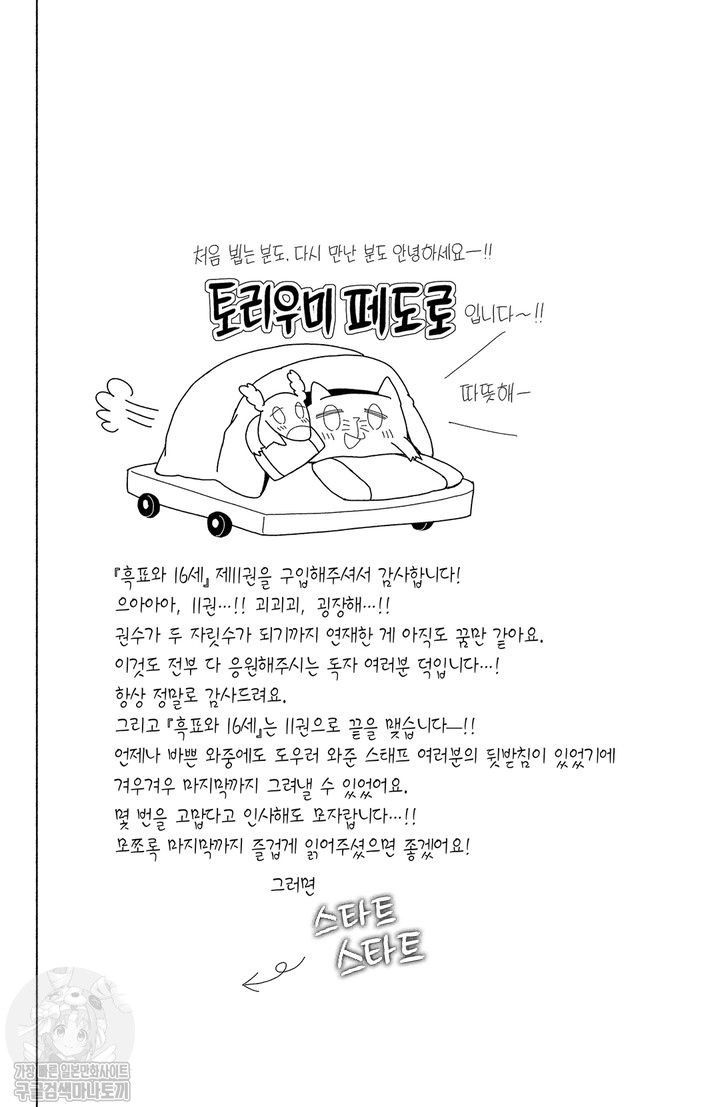 처음 뵙는 분도. 다시 만난 분도 안녕하세요—!!
토리우미 페도로 입니다~!!
따뜻해—
『흑표와 16세』 제11권을 구입해주셔서 감사합니다!
으아아아, 11권…!! 괴괴괴, 굉장해…!!
권수가 두 자릿수가 되기까지 연재한 게 아직도 꿈만 같아요.
이것도 전부 다 응원해주시는 독자 여러분 덕입니다…!
항상 정말로 감사드려요.
그리고 『흑표와 16세』는 11권으로 끝을 맺습니다—!!
언제나 바쁜 와중에도 도우러 와준 스태프 여러분의 뒷받침이 있었기에
겨우겨우 마지막까지 그려낼 수 있었어요.
몇 번을 고맙다고 인사해도 모자랍니다…!!
모쪼록 마지막까지 즐겁게 읽어주셨으면 좋겠어요!
그러면
스타트
스타트
가장 빠른 일본만화사이트
구글검색마나토끼